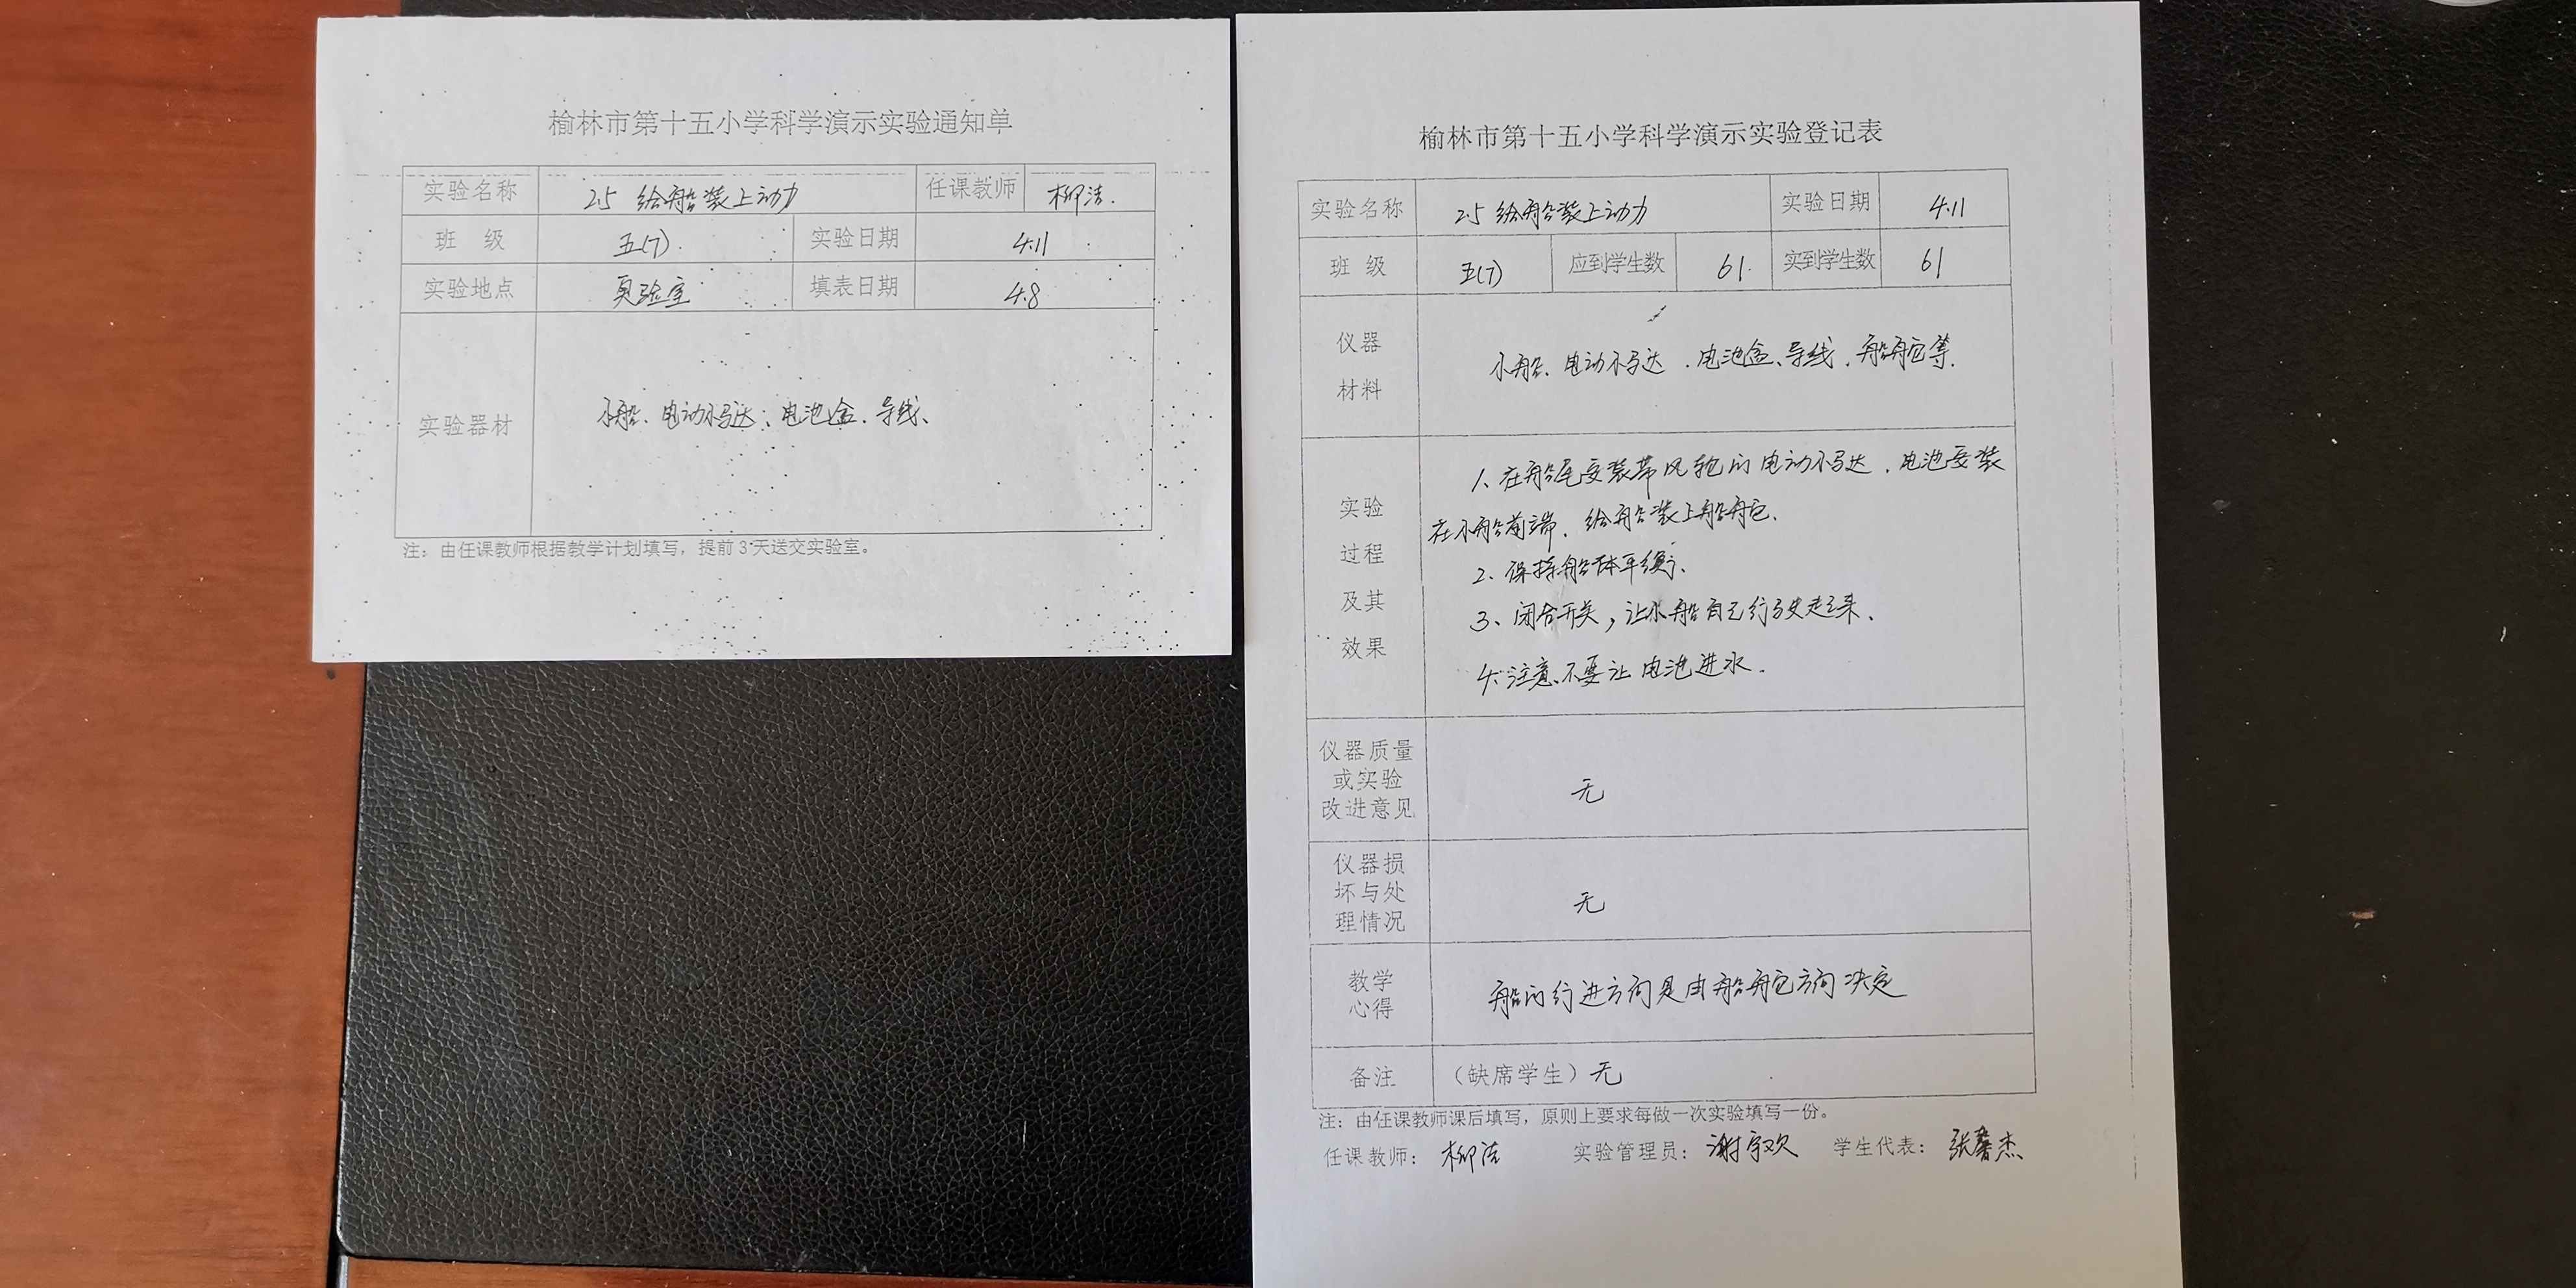 榆林市第十五小学科学演示实验通知单
实验名称 2.5 给船装上动力 任课教师 柳洁.
班 级 五(7). 实验日期 4.11
实验地点 实验室 填表日期 4.8
实验器材 小船、电动小马达、电池盒、导线、
注：由任课教师根据教学计划填写，提前3天送交实验室。
榆林市第十五小学科学演示实验登记表
实验名称 2.5 给船装上动力 实验日期 4.11
班 级 五(7) 应到学生数 61. 实到学生数 61
仪器
材料
小船、电动小马达、电池盒、导线、船舵等.
实验
过程
及其
效果
1、在船尾安装带风轮的电动小马达、电池安装
在小船前端、给船装上船舵.
2、保持船体平衡、
3、闭合开关，让小船自己行驶起来、
4、注意不要让电池进水.
仪器质量
或实验
改进意见
无
仪器损
坏与处
理情况
无
教学
心得
船的行进方向是由船舵方向决定
备注 （缺席学生）无
注：由任课教师课后填写，原则上要求每做一次实验填写一份。
任课教师： 柳洁 实验管理员： 谢宇欢 学生代表： 张馨杰